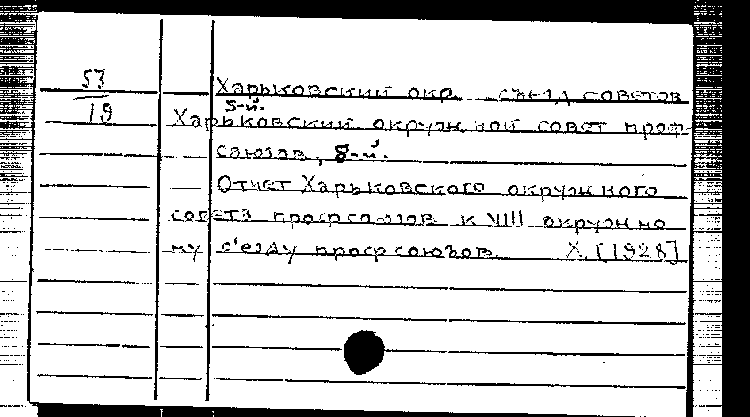 53
19
Харьковский окр. съезд советов
5-й.
Харьковский окружной совет проф-
союзов, 8-й.
Отчет Харьковского окружного
совета профсоюзов к VIII окружно
му с'езду профсоюзов. Х. [1928]